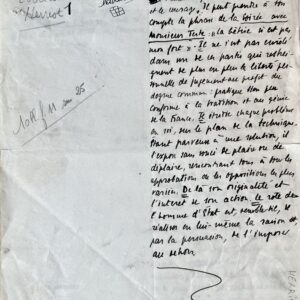 Herriot 1
et le courage. Il peut prendre à son
compte la phrase de la Soirée avec
Monsieur Teste : la bêtise n'est pas
mon fort ». Il ne s'est pas enrôlé
dans un de ces partis qui restrei-
gnent de plus en plus la liberté person-
nelle de jugement au profit du
dogme commun : pratique bien peu
conforme à la tradition et au génie
de la France. Il étudie chaque problème
en soi, sur le plan de la technique,
étant parvenu à une solution, il
l'expose sans souci de plaire ou de
déplaire, rencontrant tour à tour les
approbations ou les oppositions les plus
variées. De là son originalité et
l'intérêt de son action. Le rôle de
l'homme d'État est, semble-t-il, de
réaliser en lui-même la raison et,
par la persuasion, de l'imposer
au dehors.